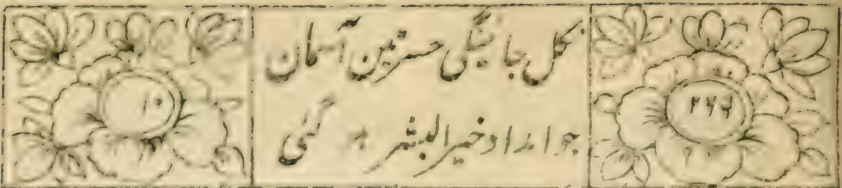 نکل جائینگی حسرتین آسمان
جو امداد خیر البشر ہو گئی
۱۰